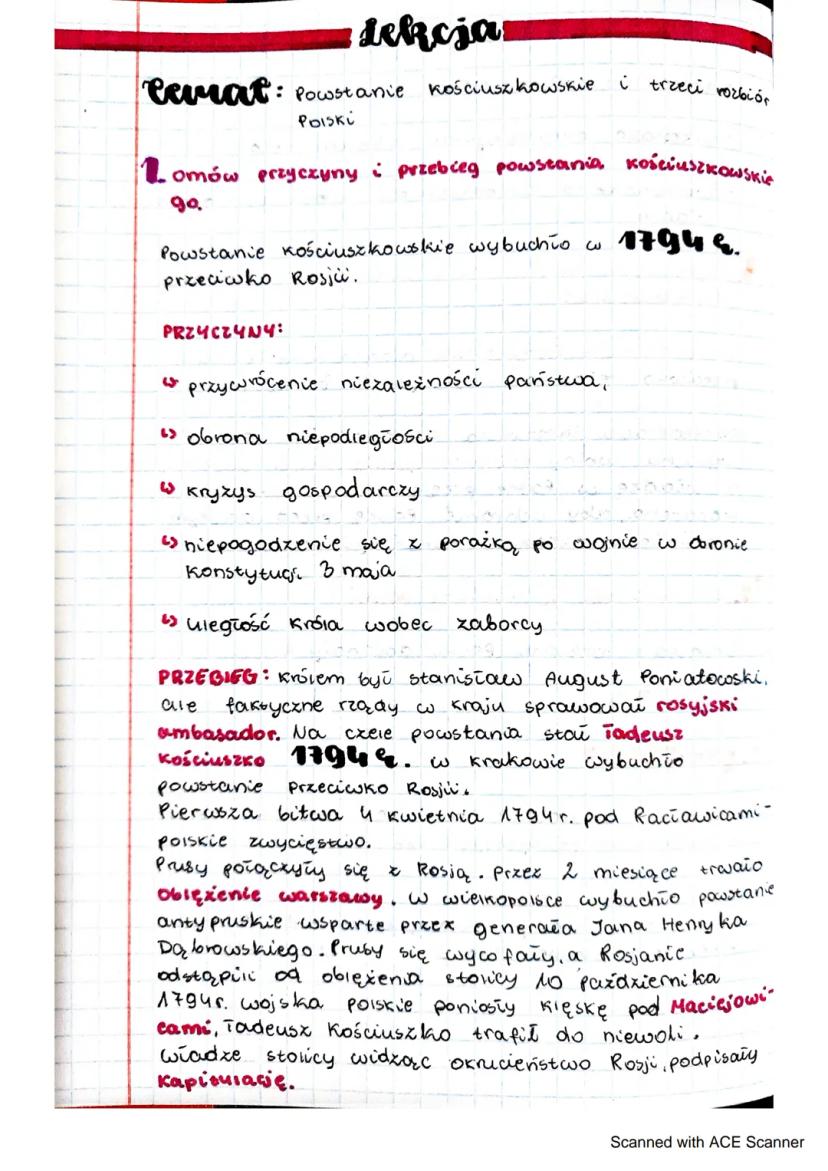 lekcja
temat: Powstanie Kościuszkowskie i trzeci rozbiór
Polski
1. omów przyczyny i przebieg powstania kościuszkowskie
go.
Powstanie Kościuszkowskie wybuchło w 1794 r.
przeciwko Rosji.
PRZYCZYNY:
↳ przywrócenie niezależności państwa,
↳ obrona niepodległości
↳ kryzys gospodarczy
↳ niepogodzenie się z porażką po wojnie w obronie
Konstytucji 3 maja
↳ uległość króla wobec zaborcy
PRZEBIEG: Królem był Stanisław August Poniatowski,
ale faktyczne rządy w kraju sprawował rosyjski
ambasador. Na czele powstania stał Tadeusz
Kościuszko 1794 r. w Krakowie wybuchło
powstanie przeciwko Rosji.
Pierwsza bitwa 4 kwietnia 1794r. pod Racławicami-
polskie zwycięstwo.
Prusy połączyły się z Rosją. Przez 2 miesiące trwało
oblężenie warszawy. W wielkopolsce wybuchło powstanie
antypruskie wsparte przez generała Jana Henryka
Dąbrowskiego. Prusy się wycofały, a Rosjanie
odstąpili od oblężenia stolicy 10 października
1794r. wojska polskie poniosły klęskę pod Maciejowi-
cami, Tadeusz Kościuszko trafił do niewoli.
Władze stolicy widząc okrucieństwo Rosji, podpisały
kapitulację.
Scanned with ACE Scanner